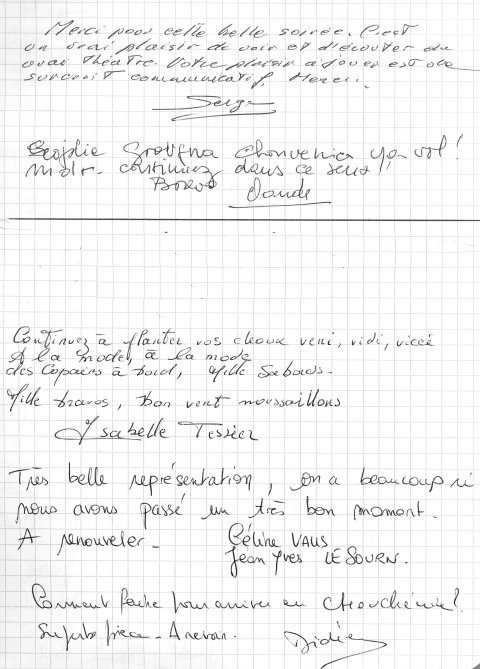 Merci pour cette belle soirée. C'est
un vrai plaisir de voir et d'écouter du
vrai théâtre. Votre plaisir à jouer est de
surcroît communicatif. Merci.
Serge
continuez dans ce sens !!
Bravo
Continuez à planter vos choux veni, vidi, viccé
A la mode, à la mode
des Copains à bord, Mille Sabords.
Mille bravos, bon vent moussaillons
Isabelle Tessier
Très belle représentation, on a beaucoup ri
nous avons passé un très bon moment.
A renouveler.
Céline VAUS
Jean Yves LE SOURN.
Comment faire pour arriver en Chouchénie?
Superbe pièce. A revoir.
Didier